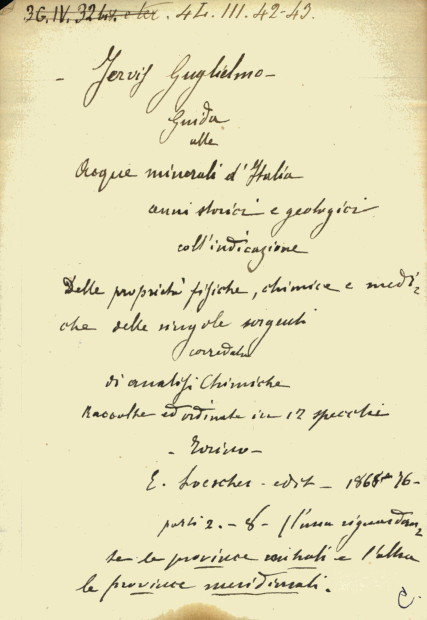 3G.IV.32 bis. e ter. 4L.III.42-43.
- Jervis Guglielmo -
Guida
alle
Acque minerali d'Italia
cenni storici e geologici
coll'indicazione
Delle proprietà fisiche, chimice e medi-
che delle singole sorgenti
corredata
di analisi Chimiche
Raccolte ed ordinate in 12 specchi
- Torino -
E. Loescher - edit - 1868 - 76 -
parti 2. - 8 - (l'una riguardan-
te le province centrali e l'altra
le province meridionali.
C.